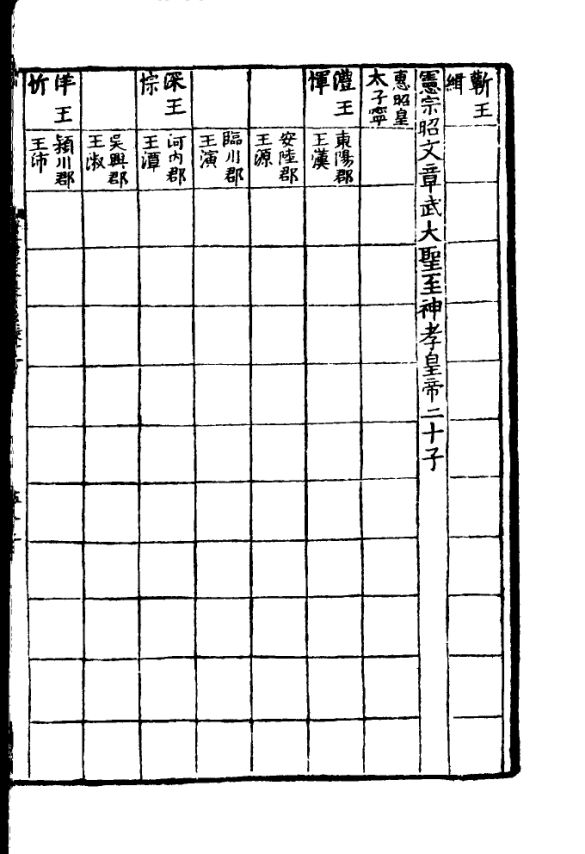 蘄王
緝
憲宗昭文章武大聖至神孝皇帝二十子
惠昭皇
太子寧
澧王
惲
東陽郡
王漢
安陸郡
王源
臨川郡
王演
深王
悰
河內郡
王潭
吳興郡
王淑
洋王
忻
潁川郡
王沛